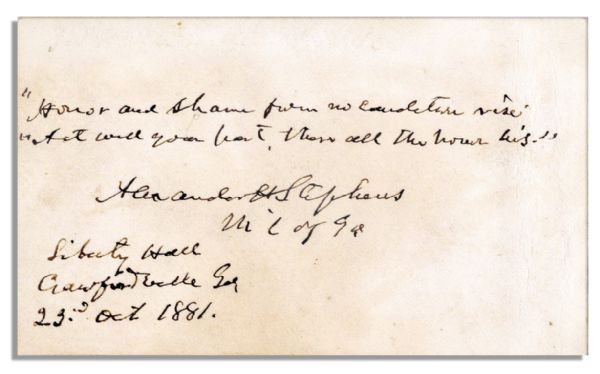 "Honor and shame from no condition rise
"Act well your part, there all the honor lies."
Alexander H Stephens
of Ga
Liberty Hall
Crawfordville Ga
23rd Oct 1881.